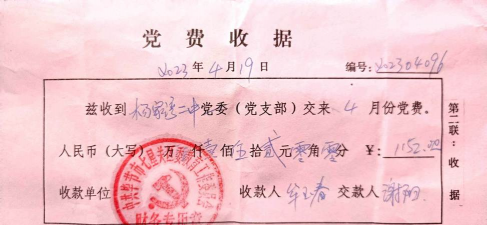 党费收据
2023年4月19日 编号:202304096
兹收到杨家湾二中党委(党支部)交来4月份党费。
人民币(大写) 万 仟壹佰伍拾贰元零角零分 ¥: 1152.00
收款单位 收款人 交款人
第二联:收据
财务专用章